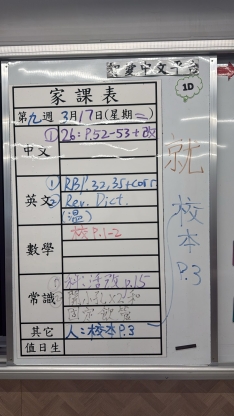 中文平台
1D
家課表
第九週 3月17日(星期二)
① 26: P.52-53+改
中文
英文
① RB1, 32, 35+corr
② Rev. Dict.
(溫)
數學
校 P.1-2
常識
P.15
其它
人:校本 P.3
值日生
就
校本
P.3